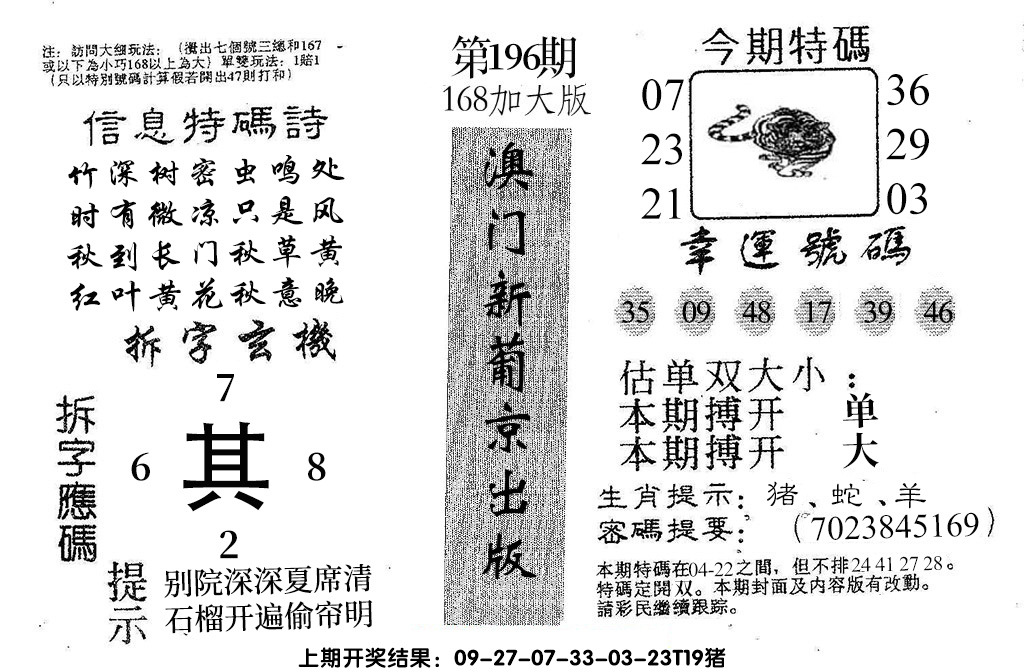 注：訪問大细玩法：（攪出七個號三總和167
或以下為小巧168以上為大）單雙玩法：1賠1
（只以特別號碼計算假若開出47則打和）
信息特碼詩
竹深树密虫鸣处
时有微凉只是风
秋到长门秋草黄
红叶黄花秋意晚
拆字玄機
7
拆字應碼
6 其 8
2
提示
别院深深夏席清
石榴开遍偷帘明
第196期
168加大版
澳门新葡京出版
今期特碼
07 36
23 29
21 03
幸運號碼
35 09 48 17 39 46
估单双大小：
本期搏开 单
本期搏开 大
生肖提示：猪、蛇、羊
密碼提要：（7023845169）
本期特碼在04-22之間，但不排24 41 27 28。
特碼定開双。本期封面及内容版有改動。
請彩民繼續跟踪。
上期开奖结果：09-27-07-33-03-23T19猪